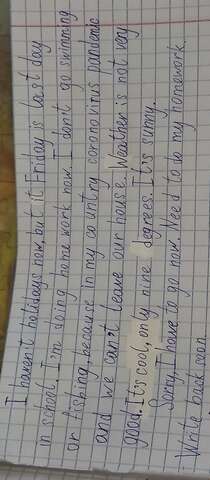 I haven't holidays now, but it Friday is last day
in school. I'm doing home work now. I don't go swimming
or fishing because in my country coronovirus pandemic
and we can't leave our house. Weather is not very
good. It's cool, only nine degrees. It's sunny.
Sorry, I have to go now. Need to do my homework.
Write back soon.